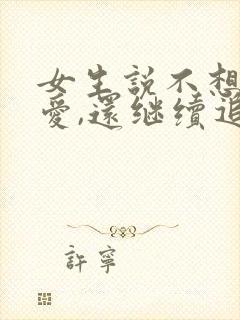 女生説不想
愛,還继續追
許寧